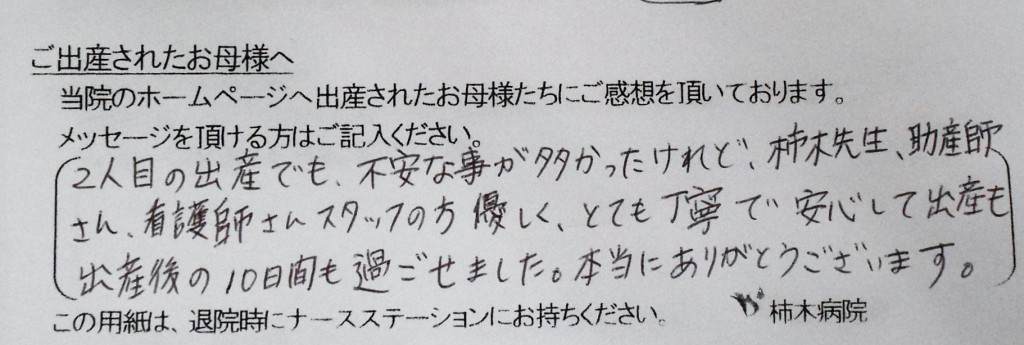 ご出産されたお母様へ
当院のホームページへ出産されたお母様たちにご感想を頂いております。
メッセージを頂ける方はご記入ください。
2人目の出産でも、不安な事が多かったけれど、柿木先生、助産師
さん、看護師さんスタッフの方優しく、とても丁寧で安心して出産も
出産後の10日間も過ごせました。本当にありがとうございます。
この用紙は、退院時にナースステーションにお持ちください。 柿木病院